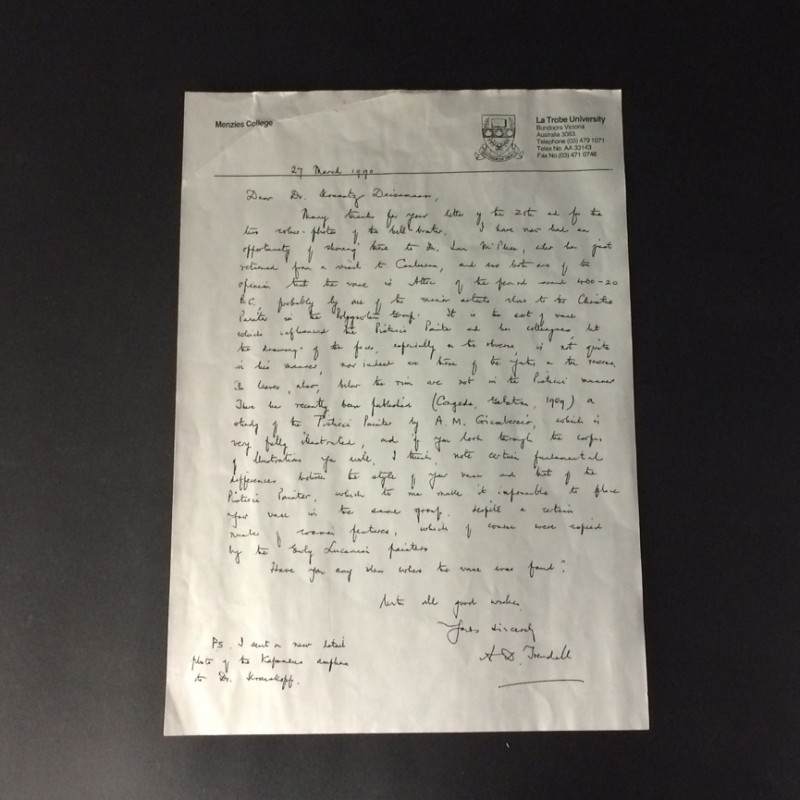 Menzies College
La Trobe University
Bundoora Victoria
Australia 3083
Telephone (03) 479 1071
Telex No. AA 33143
Fax No (03) 471 0746
27 March 1990
Dear Dr.
Many thanks for your letter of the 20th and for the
two colour-photos of the bell-krater. I have now had an
opportunity of showing these to Dr. Ian McPhee, who has just
returned from a visit to Canberra, and we both are of the
opinion that the vase is Attic of the period around 400-20
B.C., probably by one of the minor artists close to the Christie
Painter in the Polygnotan Group. It is the sort of vase
which influenced the Pisticci Painter and his colleagues but
the drawing of the faces, especially on the obverse, is not quite
in his manner, nor indeed are those of the youths on the reverse.
The leaves, also, below the rim are not in the Pisticci manner
There has recently been published (Congedo, Galatina, 1989) a
study of the Pisticci Painter by A. M. which is
very fully illustrated, and if you look through the corpus
of illustrations you will, I think, note certain fundamental
differences between the style of your vase and that of the
Pisticci Painter, which to me make it impossible to place
your vase in the same group, despite a certain
number of common features, which of course were copied
by the Early Lucanian painters
Have you any idea where the vase was found?
With all good wishes,
Yours sincerely
A D. Trendall
PS. I sent a new detail
photo of the Kapaneus amphora
to Dr. Krauskopf.